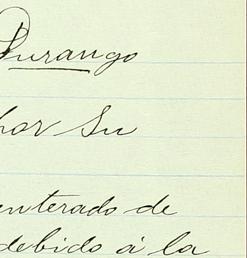 Durango
por Su
enterado de
debido á la